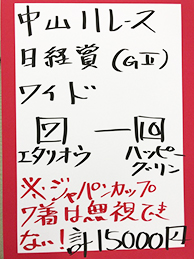 中山11レース
日経賞(GⅡ)
ワイド
7 — 10
エタリオウ ハッピーグリン
※、ジャパンカップ
7着は無視でき
ない！計15000円